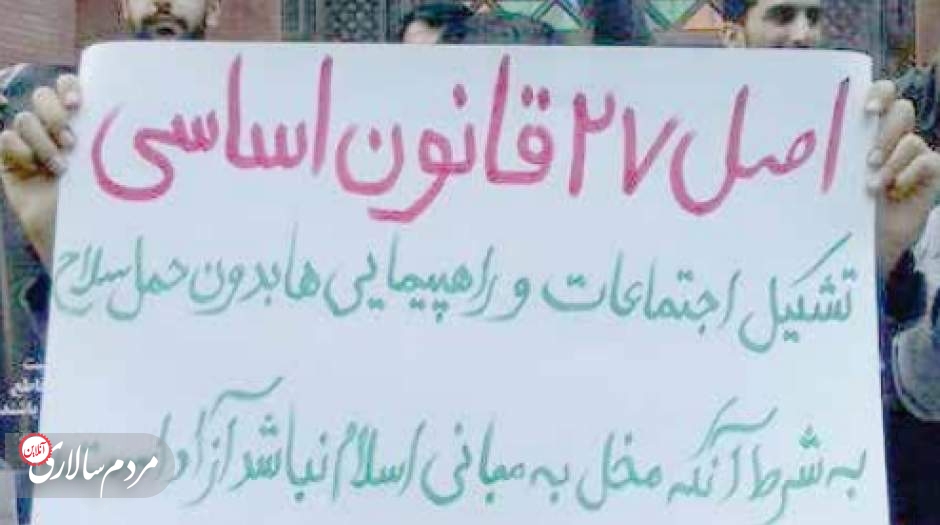 اصل ۲۷ قانون اساسی
تشکیل اجتماعات و راهپیمایی ها بدون حمل سلاح
به شرط آنکه مخل به مبانی اسلام نباشد آزاد است
مردم سالاری
آنلاین
قاطع